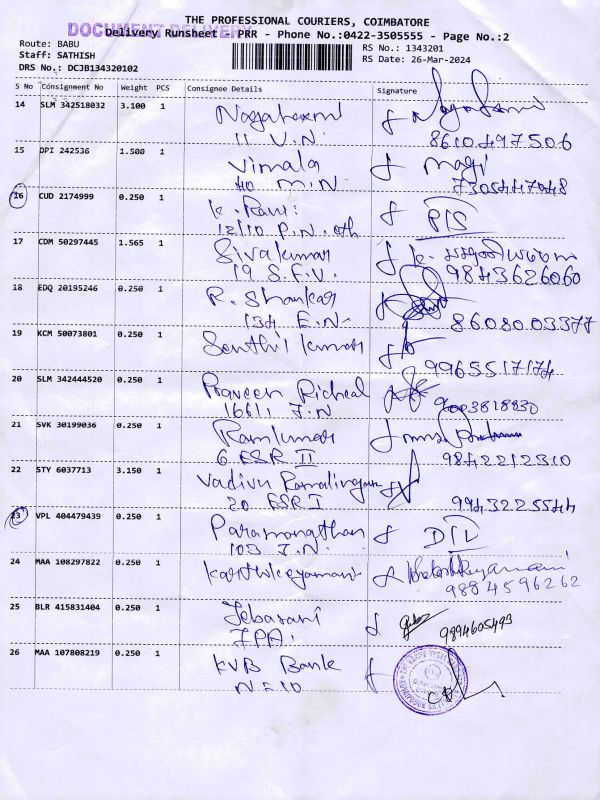 THE PROFESSIONAL COURIERS, COIMBATORE
DOCUMENT DELIVERY
Delivery Runsheet - PRR - Phone No.:0422-3505555 - Page No.:2
Route: BABU RS No.: 1343201
Staff: SATHISH RS Date: 26-Mar-2024
DRS No.: DCJB134320102
S No Consignment No Weight PCS Consignee Details Signature
14 SLM 342518032 3.100 1 Nagalaxmi
11 V.N. 8610497506
15 DPI 242536 1.500 1 Vimala Magi
40 M.N. 7305447948
16 CUD 2174999 0.250 1 K. Ravi PIS
12/10 P.N.
17 CDM 50297445 1.565 1 Sivakumar
19 S.F.V. 9843626060
18 EDQ 20195246 0.250 1 R. Shankar
134 E.N. 8608003377
19 KCM 50073801 0.250 1 Senthil Kumar
9965517174
20 SLM 342444520 0.250 1 Praveen
166/1 J.N 9003818830
21 SVK 30199036 0.250 1 Ramkumar
6 ESR II 9842212310
22 STY 6037713 3.150 1 Vadivu Ramalingam
20 ESR I 9943225544
23 VPL 404479439 0.250 1 Paramanathan D/L
103 J.N.
24 MAA 108297822 0.250 1 Karthikeyamani
9884596262
25 BLR 415831404 0.250 1 Jebarani
7PA. 9894605493
26 MAA 107808219 0.250 1 KVB Bank
NE10